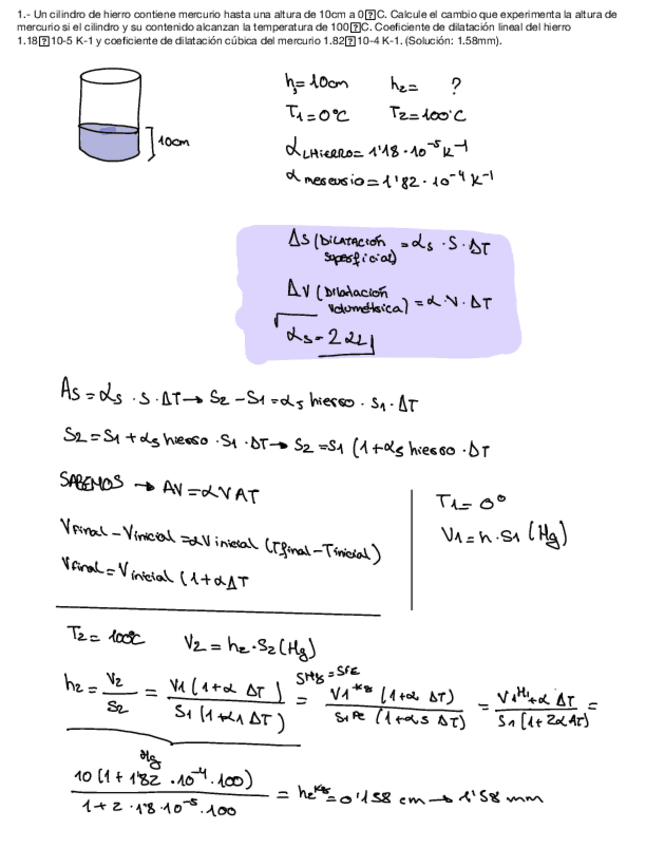 1.- Un cilindro de hierro contiene mercurio hasta una altura de 10cm a 0�C. Calcule el cambio que experimenta la altura de
mercurio si el cilindro y su contenido alcanzan la temperatura de 100�C. Coeficiente de dilatación lineal del hierro
1.18�10-5 K-1 y coeficiente de dilatación cúbica del mercurio 1.82�10-4 K-1. (Solución: 1.58mm).
10cm
h₁=10cm h₂= ?
T₁=0ºC T₂=100ºC
α LHierro= 1'18·10⁻⁵K⁻¹
α mercurio=1'82·10⁻⁴K⁻¹
ΔS (Dilatación superficial) =αs·S·ΔT
ΔV (Dilatación volumétrica) =α·V·ΔT
αs=2αL
As=αs·S·ΔT→ S₂-S₁=αs hierro·S₁·ΔT
S₂=S₁+αs hierro·S₁·ΔT→ S₂=S₁ (1+αs hierro·ΔT
SABEMOS → AV=αVAT
Vfinal-Vinicial=αVinicial (Tfinal-Tinicial)
Vfinal=Vinicial (1+αΔT
T₁= 0º
V₁=h·S₁ (Hg)
T₂= 100ºC V₂= h₂·S₂(Hg)
h₂= V₂/S₂ = V₁(1+α ΔT)/S₁(1+α₁ ΔT) = (1+α ΔT)/(1+αs ΔT) = +α ΔT/S₁(1+2αΔT) =
Hg
10(1+1'82·10⁻⁴·100)/1+2·1'18·10⁻⁵·100 = h₂ =0'158 cm→1'58 mm